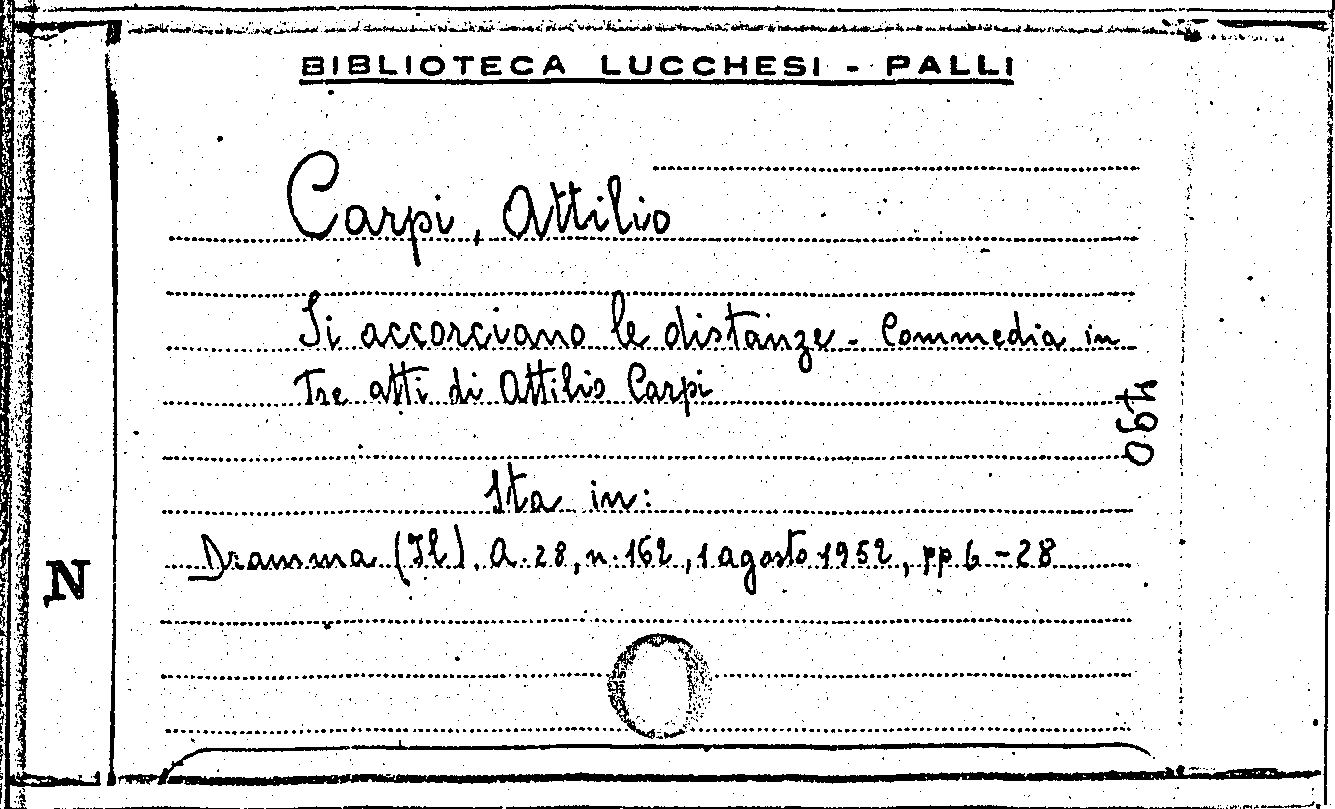 BIBLIOTECA LUCCHESI - PALLI
Carpi, Attilio
Si accorciano le distanze - Commedia in
tre atti di Attilio Carpi
490
Sta in:
Dramma (Il). A. 28, n. 162, 1 agosto 1952, pp. 6 - 28
N